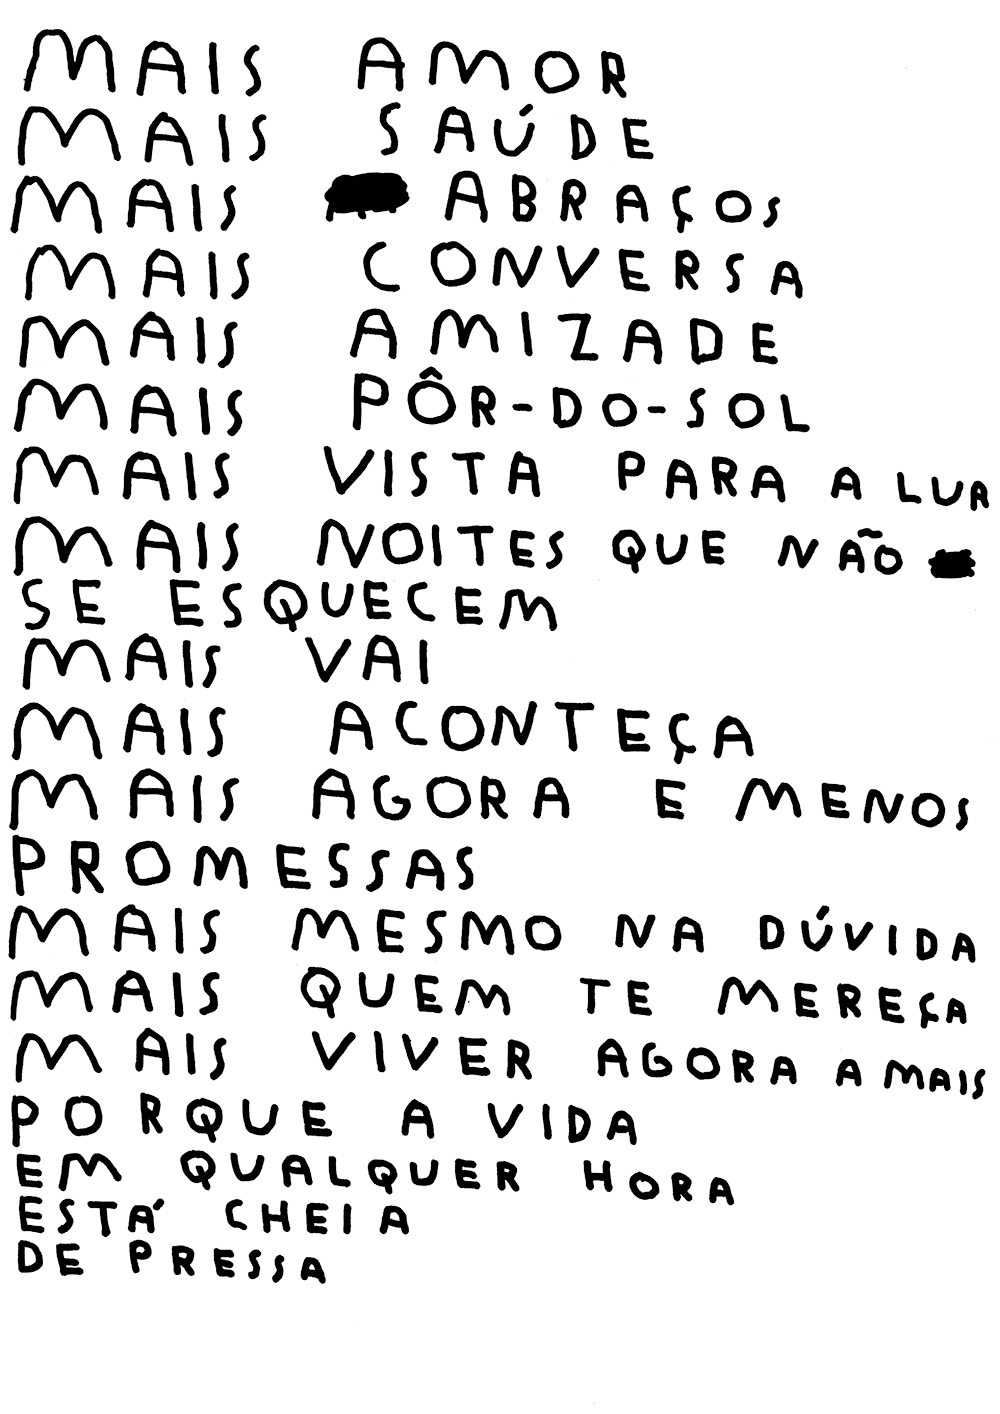 MAIS AMOR
MAIS SAÚDE
MAIS ABRAÇOS
MAIS CONVERSA
MAIS AMIZADE
MAIS PÔR-DO-SOL
MAIS VISTA PARA A LUA
MAIS NOITES QUE NÃO
SE ESQUECEM
MAIS VAI
MAIS ACONTEÇA
MAIS AGORA E MENOS
PROMESSAS
MAIS MESMO NA DÚVIDA
MAIS QUEM TE MEREÇA
MAIS VIVER AGORA A MAIS
PORQUE A VIDA
EM QUALQUER HORA
ESTÁ CHEIA
DE PRESSA